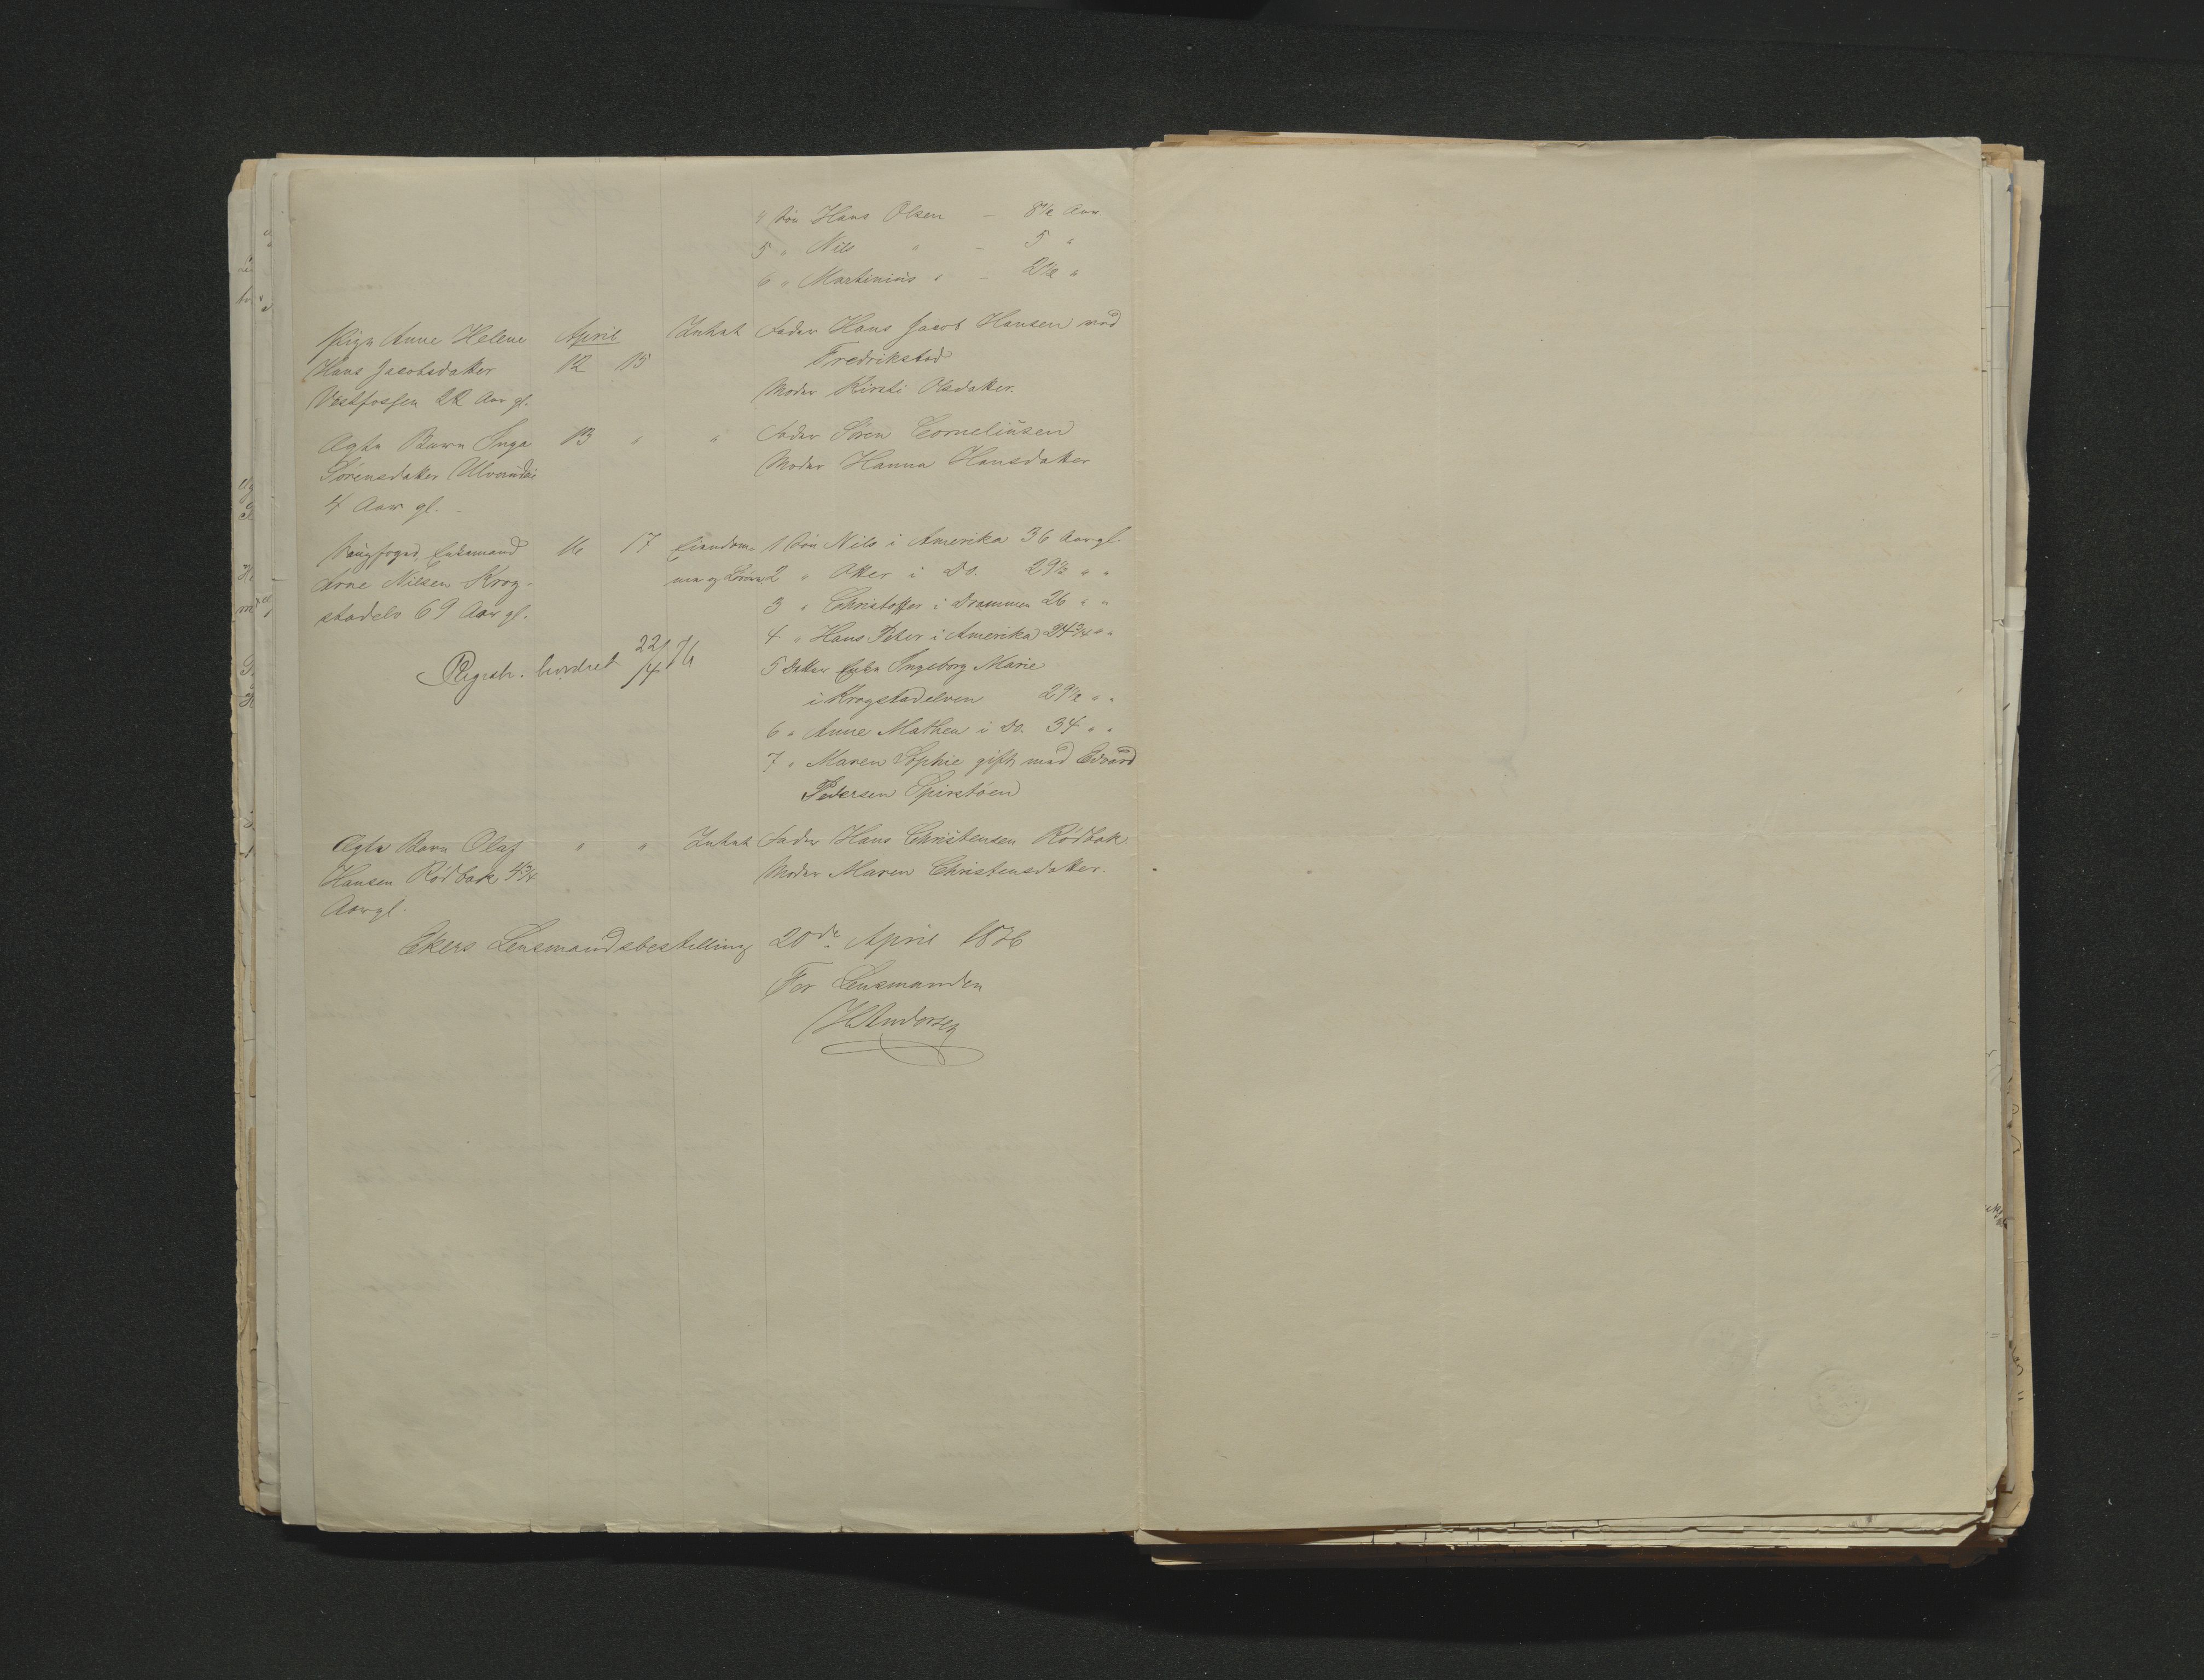 4 Søn Hans Olsen – 8½ Aar
5 " Nils " – 5 "
6 " Martinius " – 2½ "
Pige Anne Helene April Intet Fader Hans Jacob Hansen ved
Hans Jacobsdatter 12 15 Fredrikstad
Vestfossen 22 Aar gl. Moder Kirsti Olsdatter.
Ægte Barn Inga 13 " " Fader Sören Corneliusen
Sørensdatter Moder Hanna Hansdatter
4 Aar gl.
Enkemand 16 17 Eiendom- 1 Søn Nils i Amerika 36 Aar gl.
Arne Nilsen Krog- men og 2 " Otter i Do. 29½ " "
stadelv 69 Aar gl. 3 " Christoffer i Drammen 26 " "
4 " Hans Peter i Amerika 24¾ " "
Registr. 22/4 76 5 Datter Enke Ingeborg Marie
i Krogstadelven 29½ " "
6 " Anne Mathea i Do. 34 " "
7 " Maren Sophie gift med Edvard
Pedersen
Ægte Barn Olaf " " Intet Fader Hans Christensen Rödbak
Hansen Rödbak 4¾ Moder Maren Christensdatter.
Aar gl.
Ekers Lensmandsbestilling 20de April 1876
For Lensmanden
H Andersen